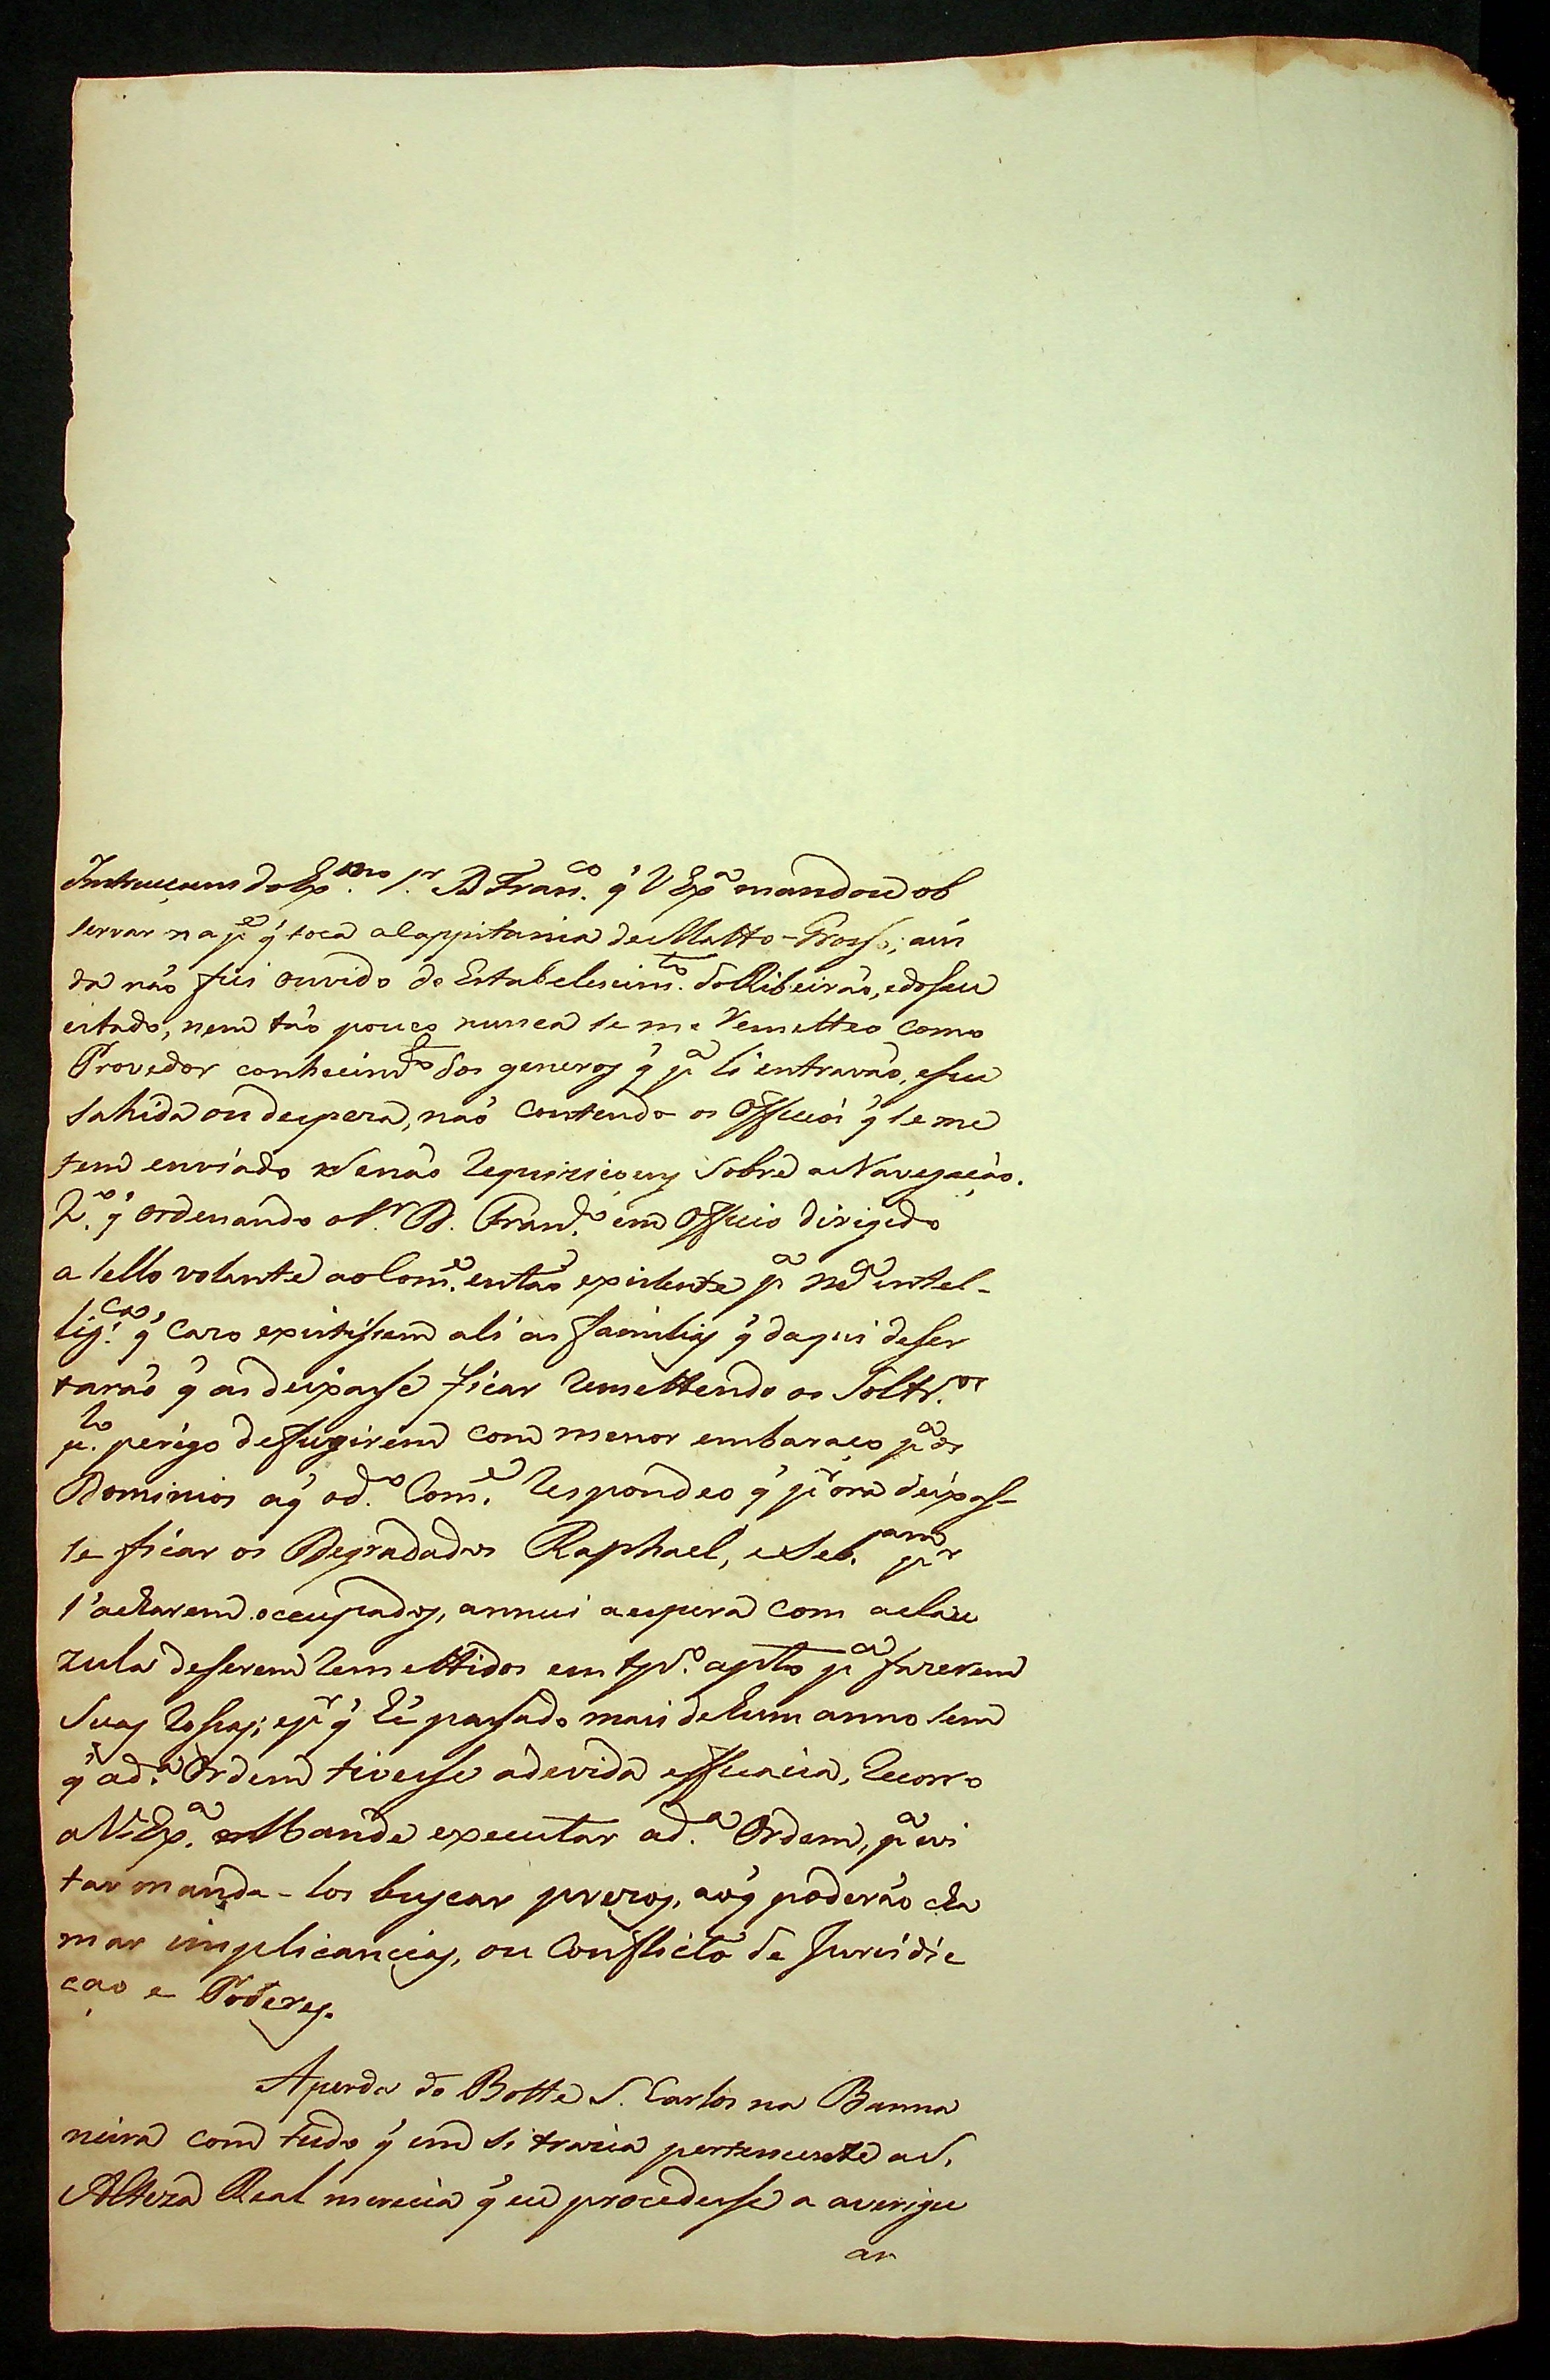 Instrucçoens do Ex.mo S.r D Fran.co q̃ V Ex.a mandou ob
servar na p.e q̃ toca a Cappitania de Matto-Grosso; ain
da não fui ouvido do Estabelescim.to do Ribeirão, e do seu
estado, nem tão pouco nunca se me remetteo como
Provedor conhecim.to dos generos q̃ p.a li entravão, e sua
sahida ou despeza, não contendo os Officios q̃ se me
tem enviado senão requiziçoens sobre a Navegação.
2.o q̃ ordenando o S.r D. Fran.co em Officio dirigido
a sello volante ao Com.e então existente p.a m.a intel-
lig.cia, q̃ cazo existissem ali as familias q̃ daqui deser
tarão q̃ as deixasse ficar remettendo os Solt.ros
p.lo perigo de fugirem com menor embaraço p.a os
Dominios a q̃ o d.o Com.e respondeo q̃ p.r ora deixas-
se ficar os Degradados Raphael, e Seb.am p.r
s'acharem occupados, annui a espera com a clau
zula de serem remettidos em tp.o apto p.a fazerem
suas rossas; e p.r q̃ hé passado mais de hum anno sem
q̃ a d.a Ordem tivesse a devida efficacia, recorro
a V. Ex.a Mande executar a d.a Ordem, p.a evi
tar manda-los buscar prezos, ao q̃ poderão cha
mar implicancias, ou Conflicto de Jurisdic
ção e Poderes.
A perda do Botte S. Carlos na Banna
neira com tudo q̃ em si trazia pertencente a S.
Alteza Real merecia q̃ eu procedesse a averigu
ar